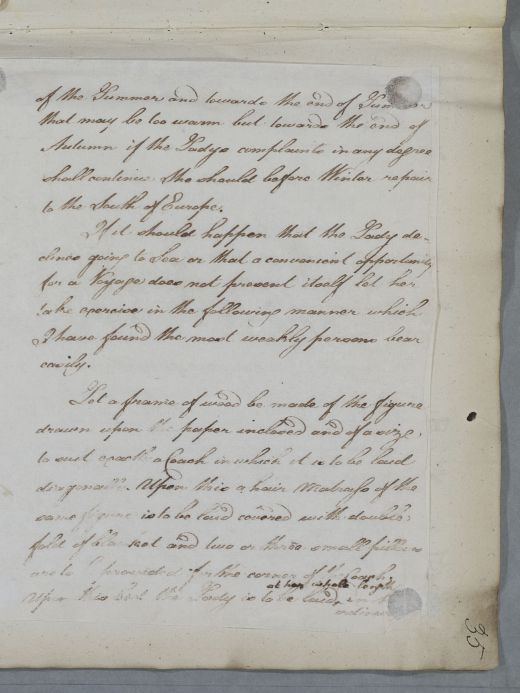 of the Summer and towards the end of Summer
that may be too warm but towards the end of
Autumn if the Ladys complaints in any degree
shall continue She should before Winter repair
to the South of Europe.
If it should happen that the Lady de-
clines going to Sea or that a convenient opportunity
for a Voyage does not present itself let her
take exercise in the following manner which
I have found the most weakly persons bear
easily.
Let a frame of wood be made of the figure
drawn upon the paper inclosed and of a size
to suit exactly a Coach in which it is to be laid
diagonally. Upon this a hair Matrass of the
same figure is to be laid covered with double
fold of blanket and two or three small pillows
are to be provided for the corner of the Coach
at her whole length
Upon this bed the Lady is to be laid in
35